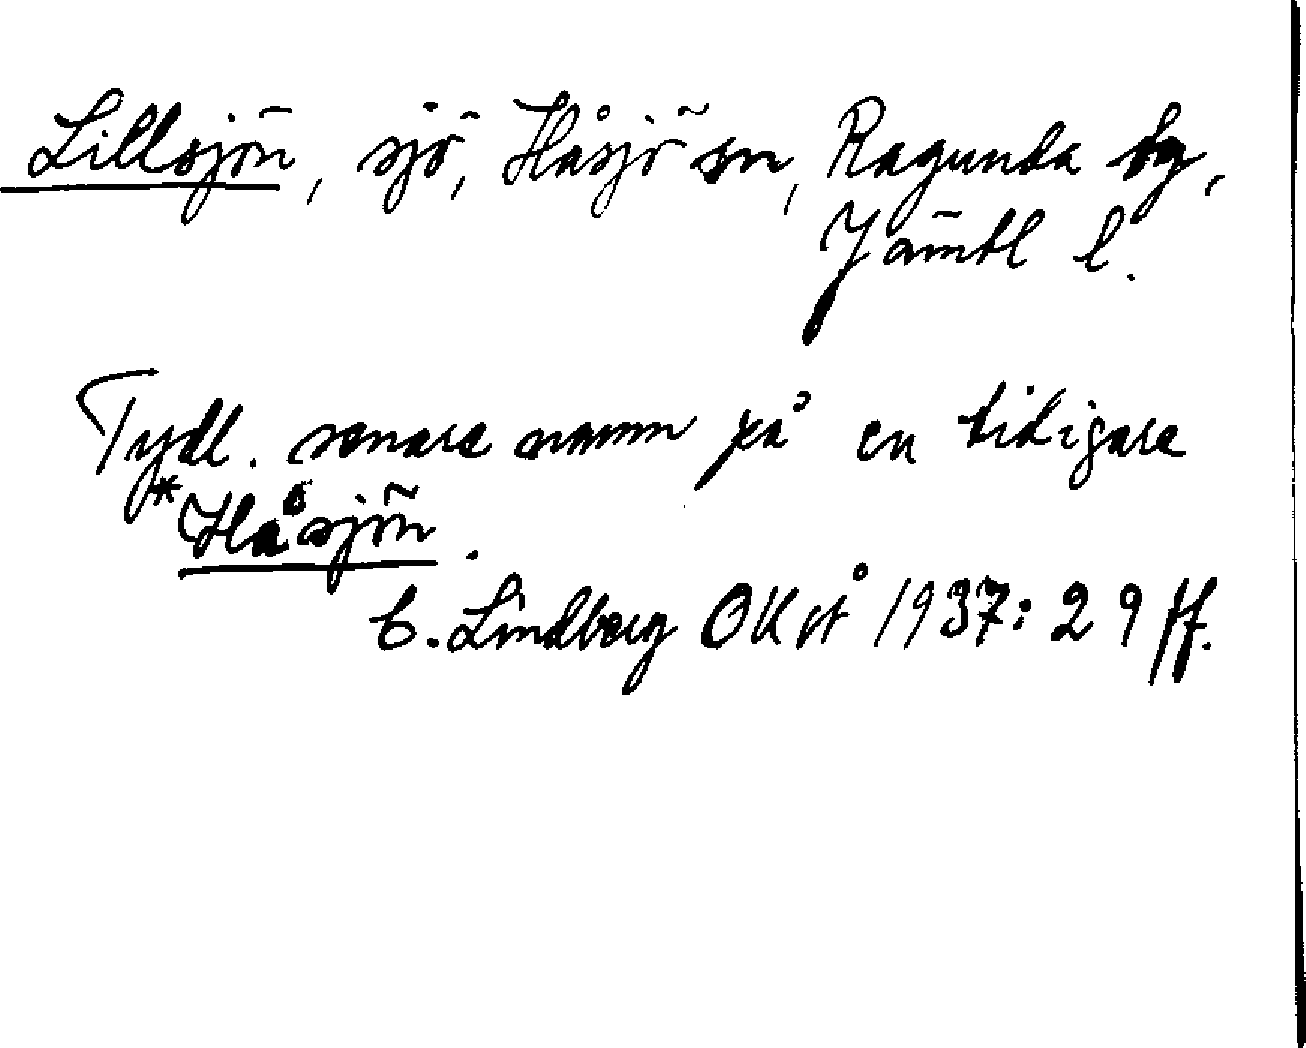 Lillsjön, sjö, Håsjö sn, Ragunda tg,
Jämtl l.
Tydl. senare namn på en tidigare
*Håsjön.
C. Lindberg OKvÅ 1937: 29 ff.